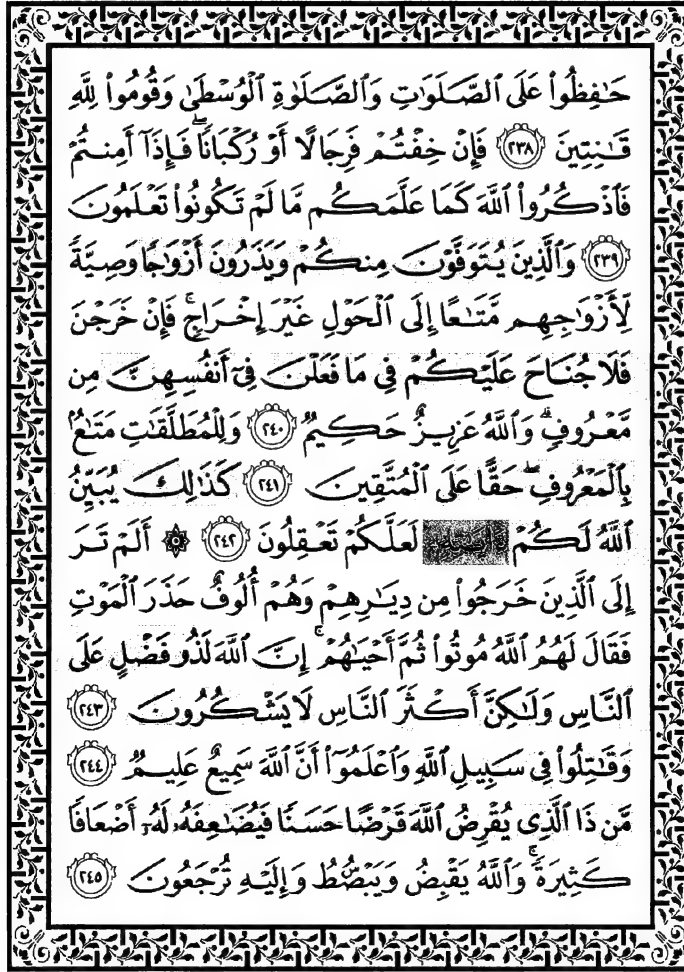 حَٰفِظُوا۟ عَلَى ٱلصَّلَوَٰتِ وَٱلصَّلَوٰةِ ٱلْوُسْطَىٰ وَقُومُوا۟ لِلَّهِ
قَٰنِتِينَ ٢٣٨ فَإِنْ خِفْتُمْ فَرِجَالًا أَوْ رُكْبَانًا ۖ فَإِذَآ أَمِنتُمْ
فَٱذْكُرُوا۟ ٱللَّهَ كَمَا عَلَّمَكُم مَّا لَمْ تَكُونُوا۟ تَعْلَمُونَ
٢٣٩ وَٱلَّذِينَ يُتَوَفَّوْنَ مِنكُمْ وَيَذَرُونَ أَزْوَٰجًا وَصِيَّةً
لِّأَزْوَٰجِهِم مَّتَٰعًا إِلَى ٱلْحَوْلِ غَيْرَ إِخْرَاجٍ ۚ فَإِنْ خَرَجْنَ
فَلَا جُنَاحَ عَلَيْكُمْ فِي مَا فَعَلْنَ فِىٓ أَنفُسِهِنَّ مِن
مَّعْرُوفٍ ۗ وَٱللَّهُ عَزِيزٌ حَكِيمٌ ٢٤٠ وَلِلْمُطَلَّقَٰتِ مَتَٰعٌۢ
بِٱلْمَعْرُوفِ ۖ حَقًّا عَلَى ٱلْمُتَّقِينَ ٢٤١ كَذَٰلِكَ يُبَيِّنُ
ٱللَّهُ لَكُمْ لَعَلَّكُمْ تَعْقِلُونَ ٢٤٢ ۞ أَلَمْ تَرَ
إِلَى ٱلَّذِينَ خَرَجُوا۟ مِن دِيَٰرِهِمْ وَهُمْ أُلُوفٌ حَذَرَ ٱلْمَوْتِ
فَقَالَ لَهُمُ ٱللَّهُ مُوتُوا۟ ثُمَّ أَحْيَٰهُمْ ۚ إِنَّ ٱللَّهَ لَذُو فَضْلٍ عَلَى
ٱلنَّاسِ وَلَٰكِنَّ أَكْثَرَ ٱلنَّاسِ لَا يَشْكُرُونَ ٢٤٣
وَقَٰتِلُوا۟ فِي سَبِيلِ ٱللَّهِ وَٱعْلَمُوٓا۟ أَنَّ ٱللَّهَ سَمِيعٌ عَلِيمٌ ٢٤٤
مَّن ذَا ٱلَّذِي يُقْرِضُ ٱللَّهَ قَرْضًا حَسَنًا فَيُضَٰعِفَهُۥ لَهُۥٓ أَضْعَافًا
كَثِيرَةً ۚ وَٱللَّهُ يَقْبِضُ وَيَبْصُۜطُ وَإِلَيْهِ تُرْجَعُونَ ٢٤٥